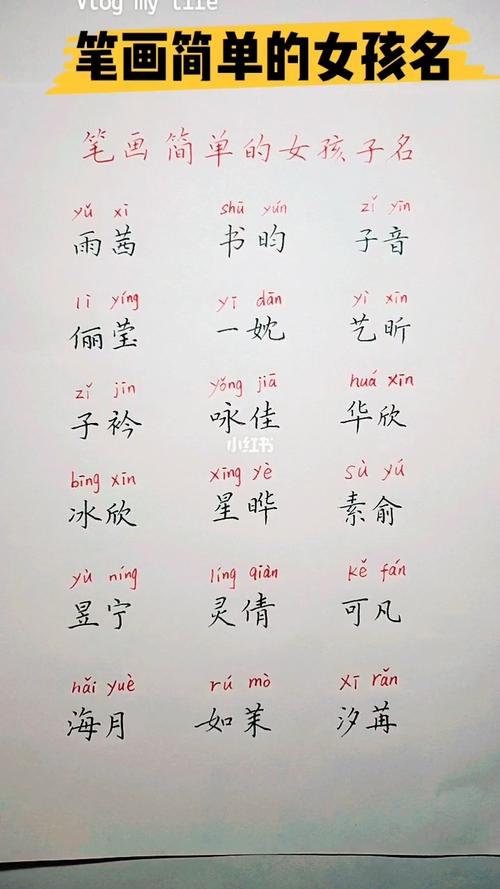 Vlog my life
笔画简单的女孩名
笔画简单的女孩子名
yǔ xī shū yún zǐ yīn
雨茜 书昀 子音
lì yíng yī dān yì xīn
俪莹 一妉 艺昕
zǐ jīn yǒng jiā huá xīn
子衿 咏佳 华欣
小红书
bīng xīn xīng yè sù yú
冰欣 星晔 素俞
yù níng líng qiàn kě fán
昱宁 灵倩 可凡
hǎi yuè rú mò xī rǎn
海月 如茉 汐苒